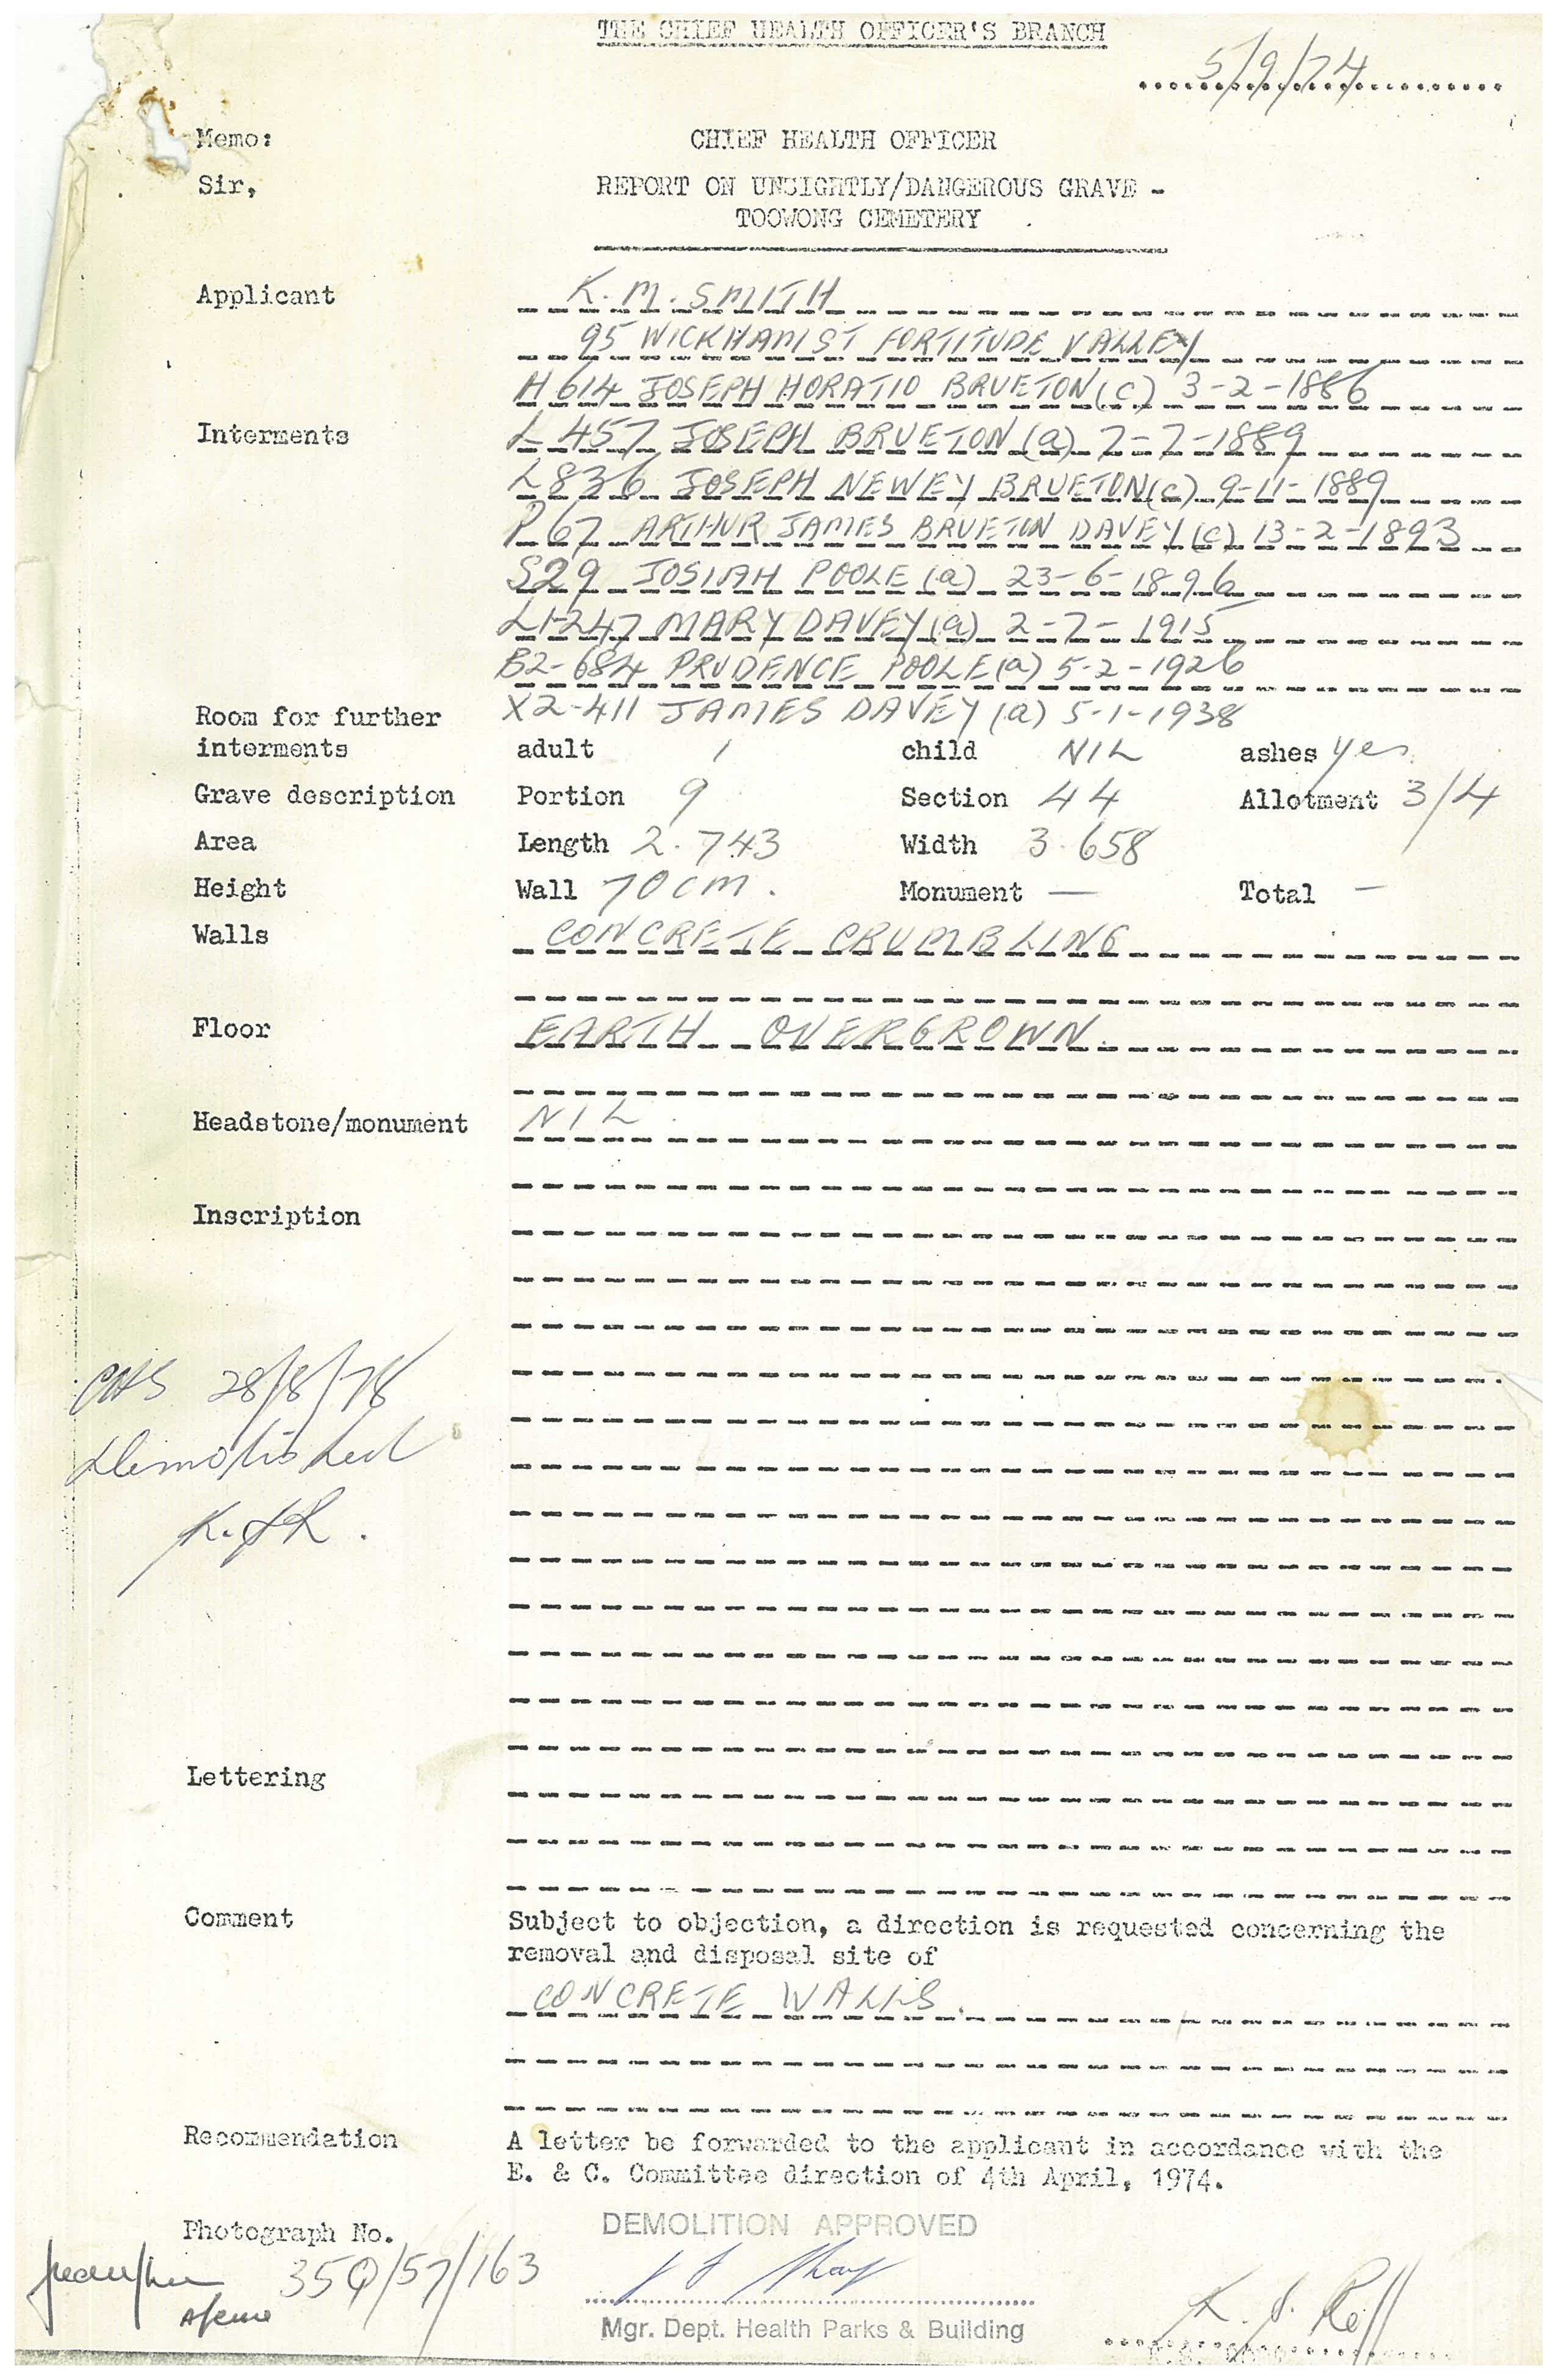 THE CHIEF HEALTH OFFICER'S BRANCH
5/9/74
Memo: CHIEF HEALTH OFFICER
Sir, REPORT ON UNSIGHTLY/DANGEROUS GRAVE -
TOOWONG CEMETERY
Applicant K. M. SMITH
95 WICKHAM ST FORTITUDE VALLEY
H 614 JOSEPH HORATIO BRUETON (c) 3-2-1886
Interments L 457 JOSEPH BRUETON (a) 7-7-1889
L836 JOSEPH NEWEY BRUETON (c) 9-11-1889
P 67 ARTHUR JAMES BRUETON DAVEY (c) 13-2-1893
S29 JOSIAH POOLE (a) 23-6-1896
L1-247 MARY DAVEY (a) 2-7-1915
B2-684 PRUDENCE POOLE (a) 5-2-1926
Room for further X2-411 JAMES DAVEY (a) 5-1-1938
interments adult 1 child NIL ashes yes
Grave description Portion 9 Section 44 Allotment 3/4
Area Length 2.743 Width 3.658
Height Wall 70 cm. Monument — Total —
Walls CONCRETE CRUMBLING
Floor EARTH OVERGROWN.
Headstone/monument NIL.
Inscription
CHS 28/8/78
Demolished
Lettering
Comment Subject to objection, a direction is requested concerning the
removal and disposal site of
CONCRETE WALLS.
Recommendation A letter be forwarded to the applicant in accordance with the
E. & C. Committee direction of 4th April, 1974.
Photograph No. DEMOLITION APPROVED
35Q/57/163
Mgr. Dept. Health Parks & Building